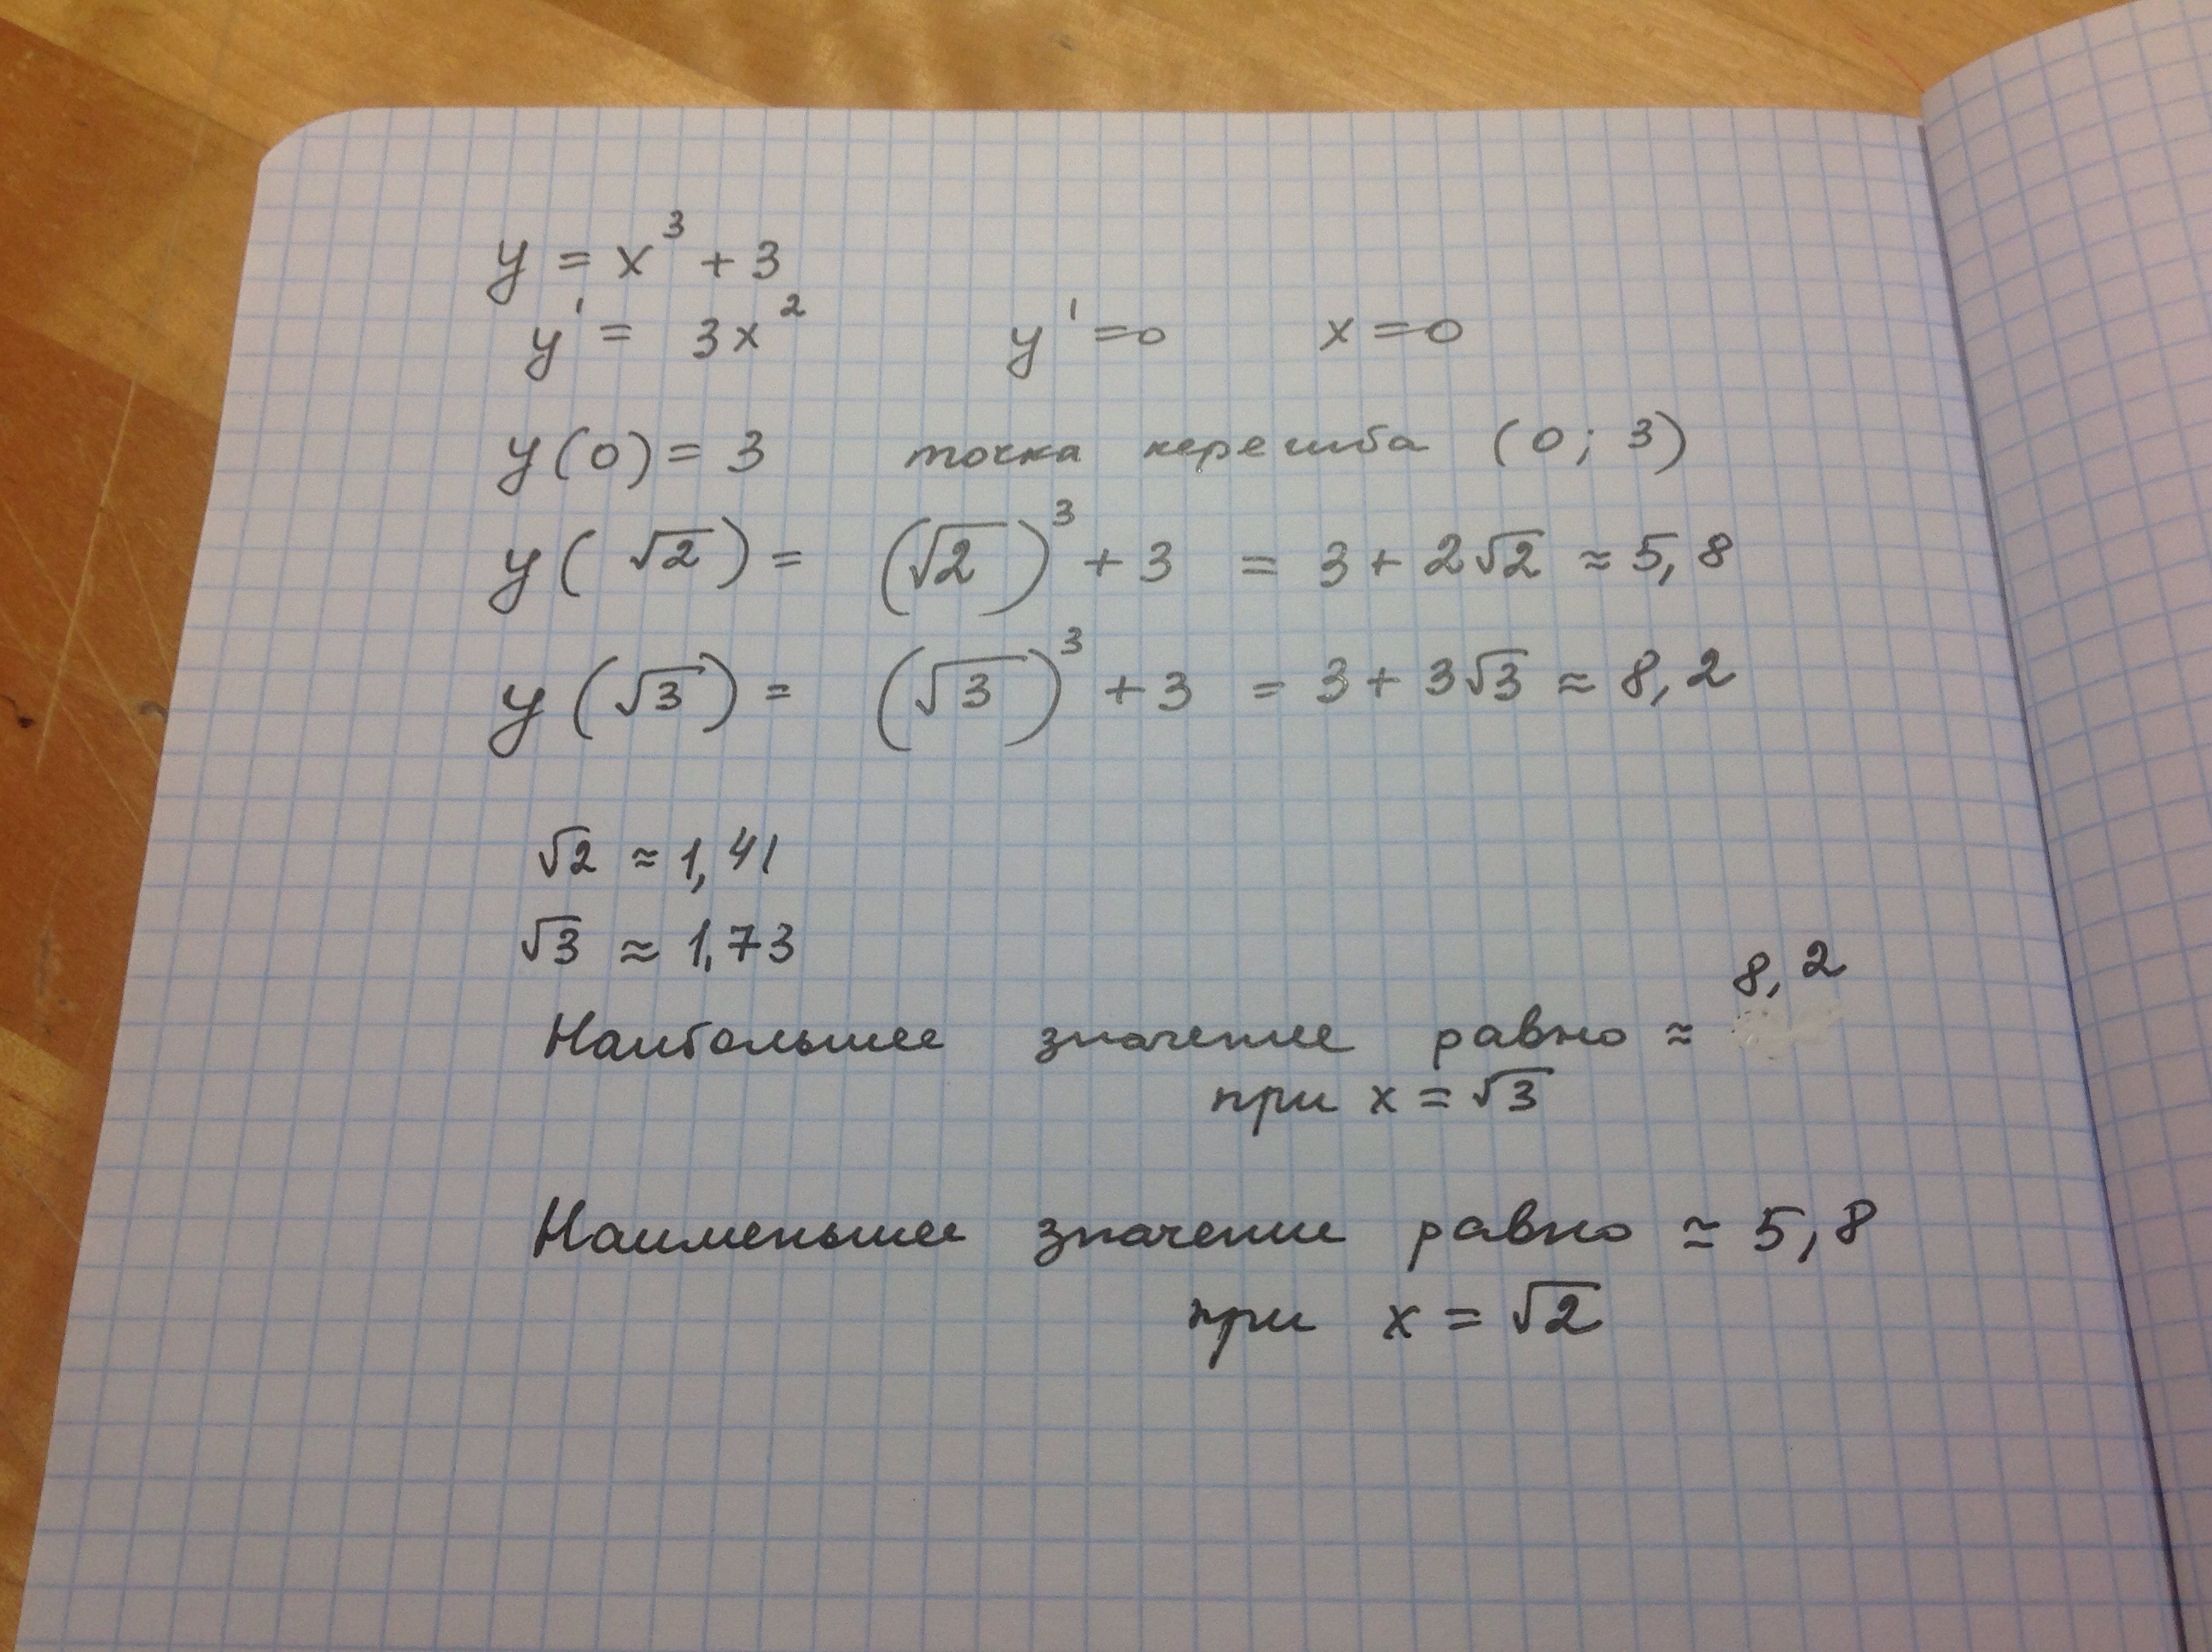 y = x³ + 3
y' = 3x² y' = 0 x = 0
y(0) = 3 точка перегиба (0; 3)
y(√2) = (√2)³ + 3 = 3 + 2√2 ≈ 5,8
y(√3) = (√3)³ + 3 = 3 + 3√3 ≈ 8,2
√2 ≈ 1,41
√3 ≈ 1,73
Наибольшее значение равно ≈ 8,2
при x = √3
Наименьшее значение равно ≈ 5,8
при x = √2